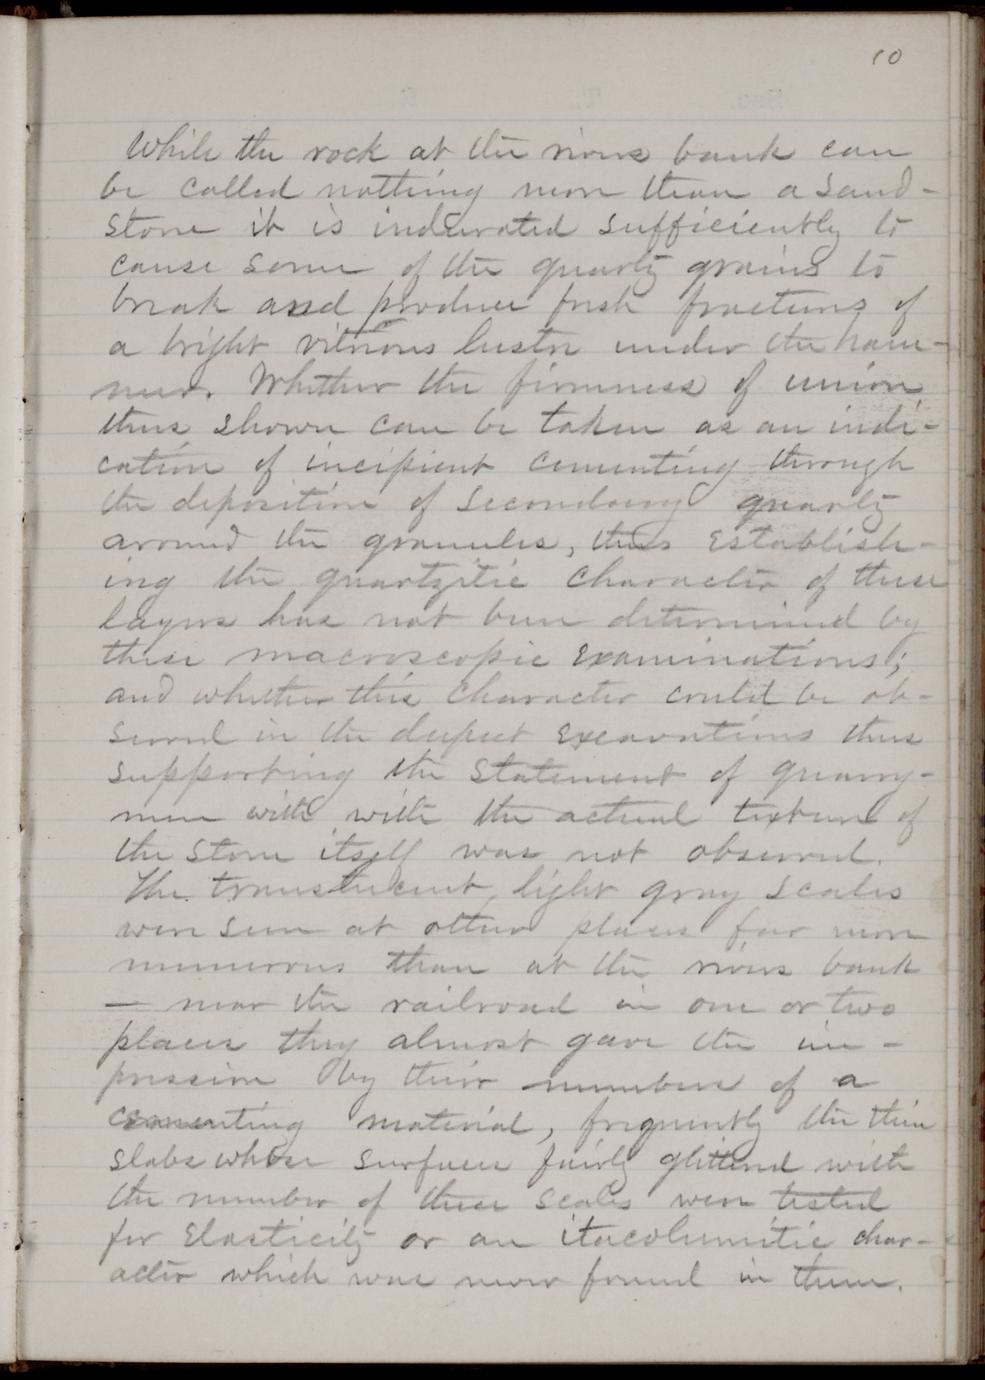 10
While the rock at the rivers bank can
be called nothing more than a sand-
stone it is indurated sufficiently to
cause some of the quartz grains to
break and produce fresh fractures of
a bright vitreous lustre under the ham-
mer. Whether the firmness of union
thus shown can be taken as an indi-
cation of incipient cementing through
the deposition of secondary quartz
around the granules, thus establish-
ing the quartzitic character of these
layers has not been determined by
these macroscopic examinations;
and whether this character could be ob-
served in the deepest excavations thus
supporting the statement of quarry-
men with with the actual texture of
the stone itself was not observed.
The translucent, light gray scales
were seen at other places far more
numerous than at the rivers bank
— near the railroad in one or two
places they almost gave the im-
pression by their numbers of a
cementing material, frequently the thin
slabs whose surfaces fairly glittered with
the number of these scales were tested
for elasticity or an itacolumitic char-
acter which was never found in them.